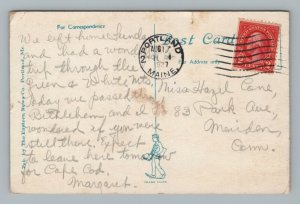 For Correspondence
Post Card
Address only
PORTLAND
AUG 17
MAINE
We left home Sunday
and had a wonderful
trip through the
Green & White Mts.
Today we passed thru
Bethlehem and I
wondered if you were
still there. Expect
to leave here tomorrow
for Cape Cod.
Margaret.
Miss Hazel Cone,
83 Park Ave,
Meriden,
Conn.